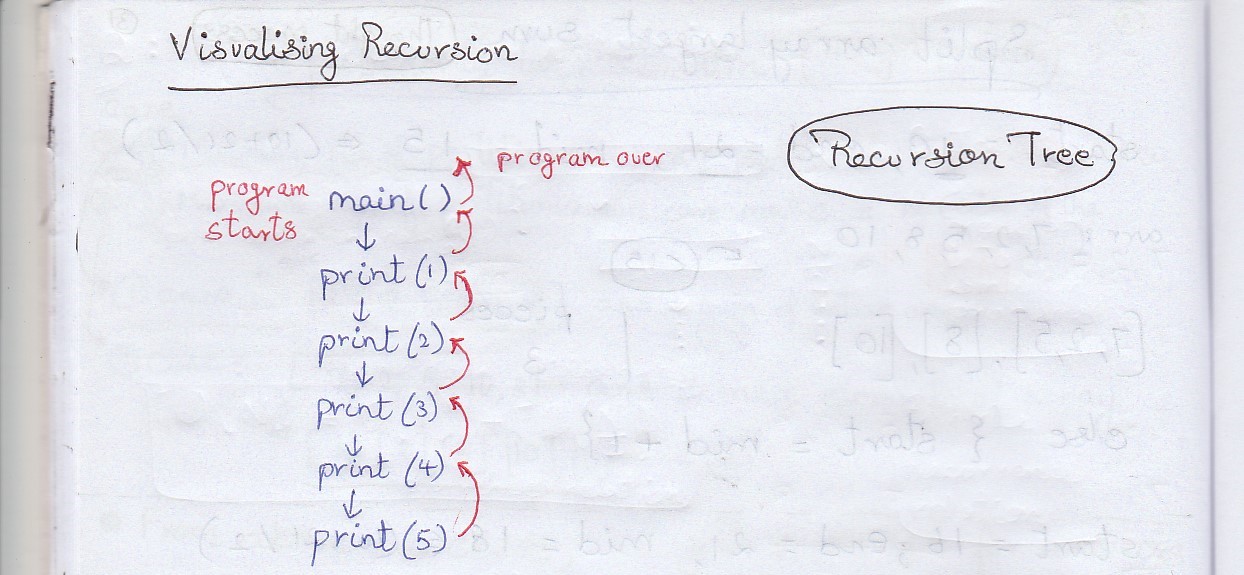 Visualising Recursion
Recursion Tree
program over
program
starts
main()
↓
print(1)
↓
print(2)
↓
print(3)
↓
print(4)
↓
print(5)